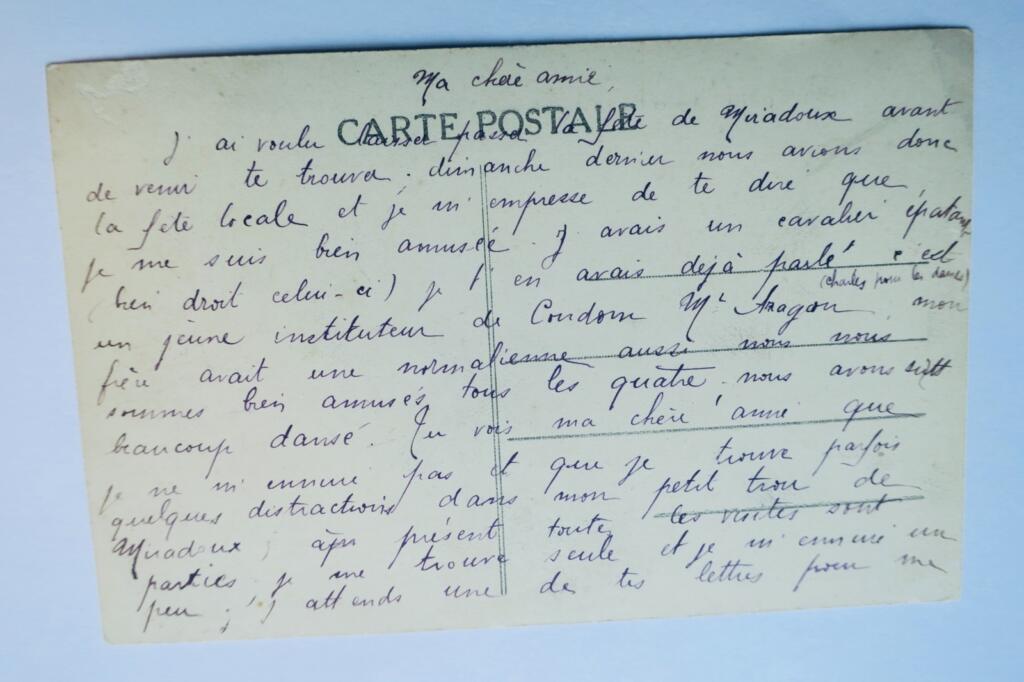 Ma chère amie,
CARTE POSTALE
J'ai voulu laisser passer la fête de Miradoux avant
de venir te trouver. dimanche dernier nous avions donc
la fête locale et je m'empresse de te dire que
je me suis bien amusée. J'avais un cavalier épatant
(bien droit celui-ci) je t'en avais déjà parlé c'est
(charles pour les dames)
un jeune instituteur de Condom Mr Aragon, mon
frère avait une normalienne aussi nous nous
sommes bien amusés tous les quatre. nous avons
beaucoup dansé. Tu vois ma chère amie que
je ne m'ennuie pas et que je trouve parfois
quelques distractions dans mon petit trou de
Miradoux; à présent toutes les visites sont
parties je me trouve seule et je m'ennuie un
peu; j'attends une de tes lettres pour me